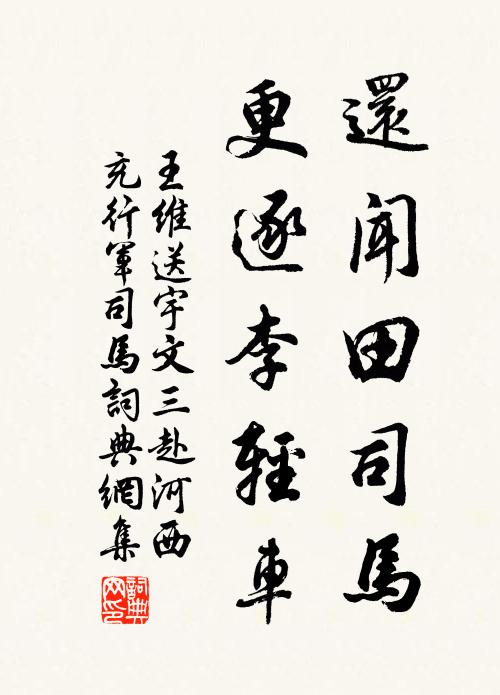 還聞田司馬
更逐李輕車
王維送宇文三赴河西
充行軍司馬詞典網集
詞典
网印